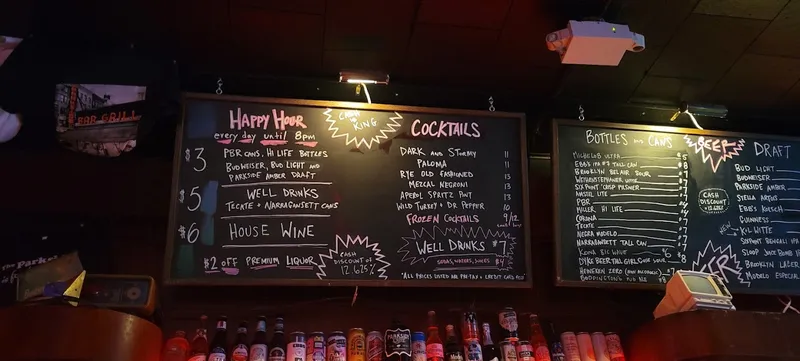 BAR GRILL
HAPPY HOUR
every day until 8pm
$3
PBR CANS, HI LIFE BOTTLES
BUDWEISER, BUD LIGHT AND
PARKSIDE AMBER DRAFT
$5
WELL DRINKS
TECATE + NARRAGANSETT CANS
$6
HOUSE WINE
$2 OFF PREMIUM LIQUOR
CASH IS KING
CASH DISCOUNT OF 12.625%
COCKTAILS
DARK AND STORMY 11
PALOMA 11
RYE OLD FASHIONED 13
MEZCAL NEGRONI 13
APEROL SPRITZ PINT 13
WILD TURKEY + DR PEPPER 10
FROZEN COCKTAILS 9/12
WELL DRINKS $7
SODAS, WATERS, JUICES $4
*ALL PRICES LISTED ARE PRE-TAX + CREDIT CARD FEE*
BOTTLES AND CANS
MICHELOB ULTRA
EBB'S IPA #7 TALL CAN
BROOKLYN BEL AIR SOUR
SIX POINT CRISP PILSNER
AMSTEL LITE
PBR
MILLER HI LIFE
CORONA
TECATE
NEGRA MODELO
NARRAGANSETT TALL CAN
KONA BIG WAVE
DYKE BEER TALL GIRL GOSE SOUR
HEINEKEN ZERO (NON ALCOHOLIC)
BEER
CASH DISCOUNT 12.625%
BEER
DRAFT
BUD LIGHT
BUDWEISER
PARKSIDE AMBER
STELLA ARTOIS
EBB'S KOLSCH
GUINNESS
NEW!
KCL WITTE
SIXPOINT BENGALI IPA
SLOOP JUICE BOMB
BROOKLYN LAGER
MODELO ESPECIAL
the Parks
PARKSIDE